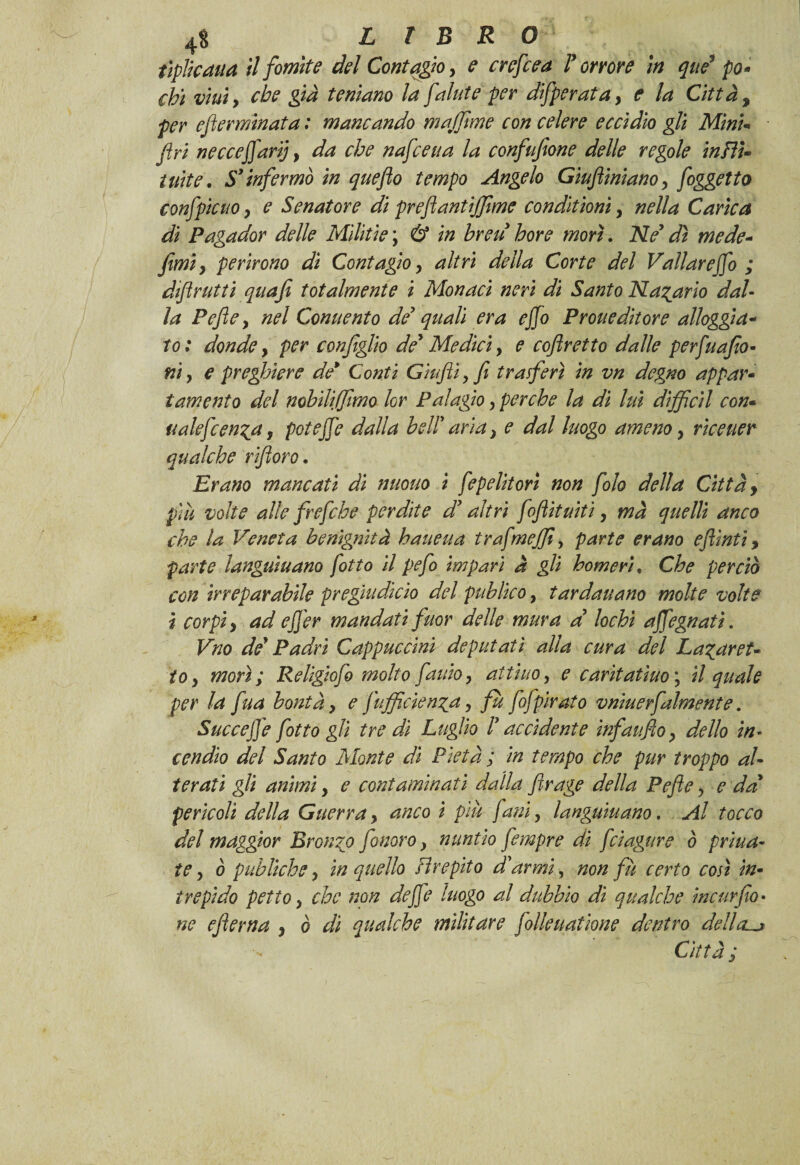 48 LIBRO
tiplicaua il fomite del Contagio, e crescea l'orrore in que' po-
chi viui, che già teniano la salute per disperata, e la Città,
per esterminata: mancando massime con celere eccidio gli Mini-
stri neccessarij, da che nasceua la confusione delle regole insti-
tuite. S'infermò in questo tempo Angelo Giustiniano, soggetto
conspicuo, e Senatore di prestantissime conditioni, nella Carica
di Pagador delle Militie; & in breu' hore morì. Ne' dì mede-
simi, perirono di Contagio, altri della Corte del Vallaresso;
distrutti quasi totalmente i Monaci neri di Santo Nazario dal-
la Peste, nel Conuento de' quali era esso Proueditore alloggia-
to: donde, per consiglio de' Medici, e costretto dalle persuasio-
ni, e preghiere de' Conti Giusti, si trasferì in vn degno appar-
tamento del nobilissimo lor Palagio, perche la di lui difficil con-
ualescenza, potesse dalla bell' aria, e dal luogo ameno, riceuer
qualche ristoro.
Erano mancati di nuouo i sepelitori non solo della Città,
più volte alle fresche perdite d' altri sostituiti, mà quelli anco
che la Veneta benignità haueua trasmessi, parte erano estinti,
parte languiuano sotto il peso impari à gli homeri. Che perciò
con irreparabile pregiudicio del publico, tardauano molte volte
i corpi, ad esser mandati fuor delle mura a' lochi assegnati.
Vno de' Padri Cappuccini deputati alla cura del Lazaret-
to, morì; Religioso molto sauio, attiuo, e caritatiuo; il quale
per la sua bontà, e sufficienza, fù sospirato vniuersalmente.
Successe sotto gli tre di Luglio l' accidente infausto, dello in-
cendio del Santo Monte di Pietà; in tempo che pur troppo al-
terati gli animi, e contaminati dalla strage della Peste, e da'
pericoli della Guerra, anco i più sani, languiuano. Al tocco
del maggior Bronzo sonoro, nuntio sempre di sciagure ò priua-
te, ò publiche, in quello strepito d'armi, non fù certo così in-
trepido petto, che non desse luogo al dubbio di qualche incursio-
ne esterna, ò di qualche militare solleuatione dentro della
Città;